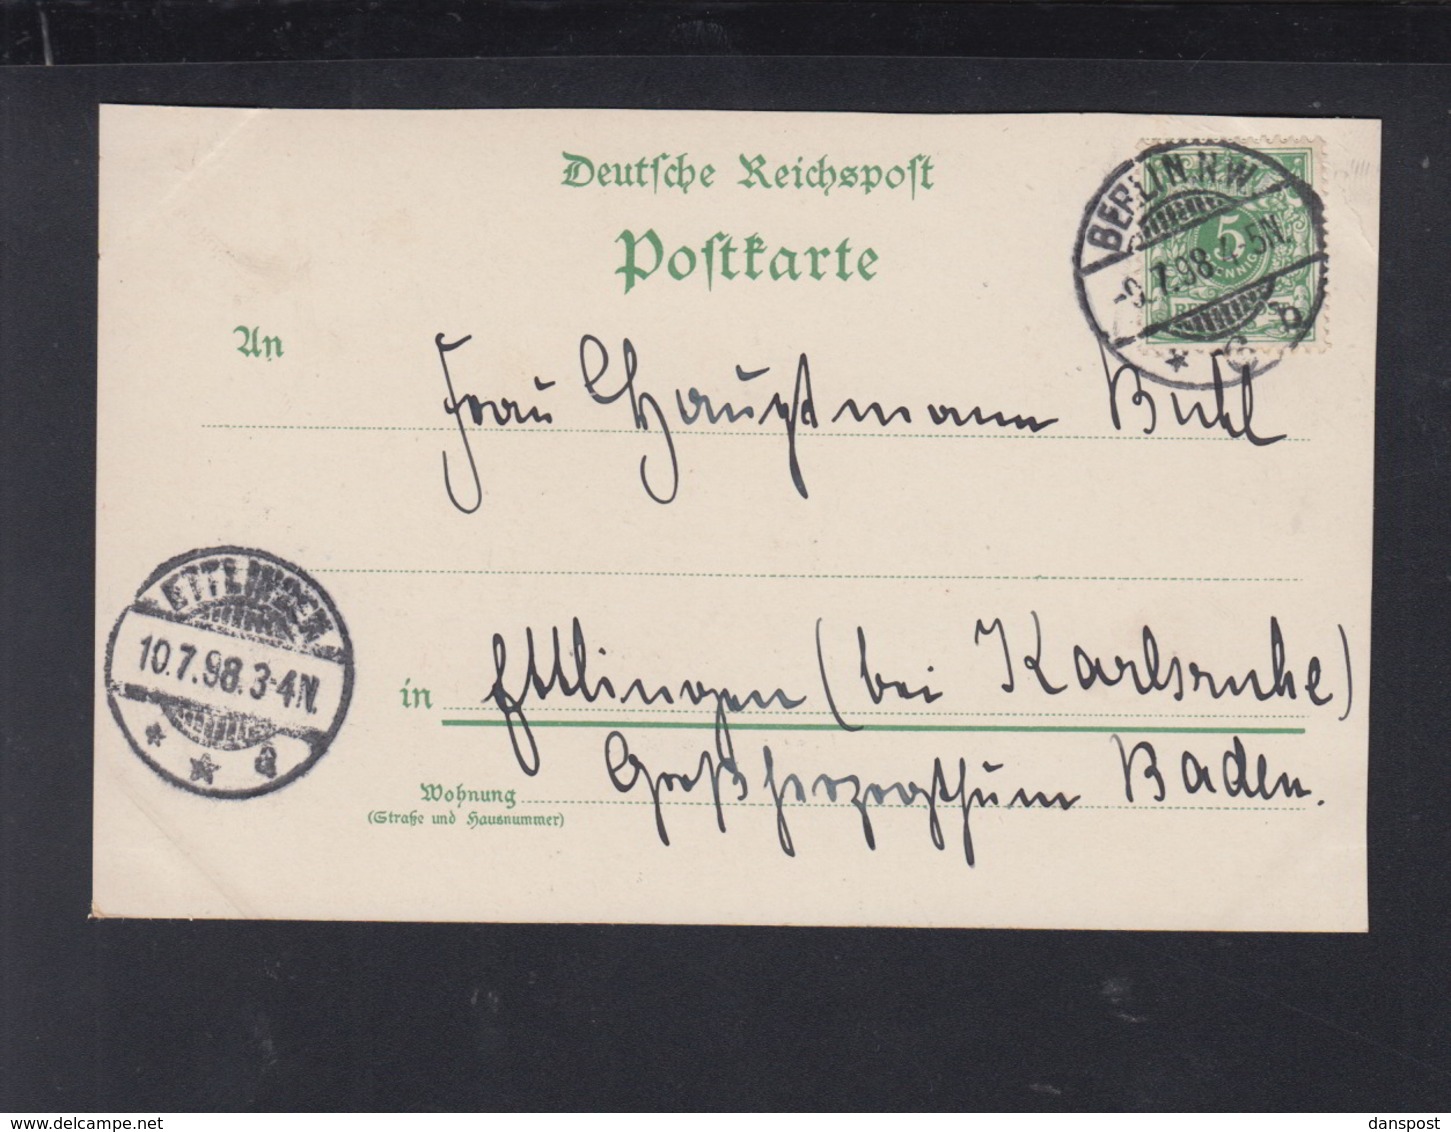 Deutsche Reichspost
Postkarte
BERLIN. N.W.
9.7.98.4-5N.
* 6 b
5
PFENNIG
An
Frau Hauptmann Buhl
ETTLINGEN
10.7.98.3-4N.
in Ettlingen (bei Karlsruhe)
Großherzogthum Baden.
Wohnung
(Straße und Hausnummer)
delcampe.net
danspost